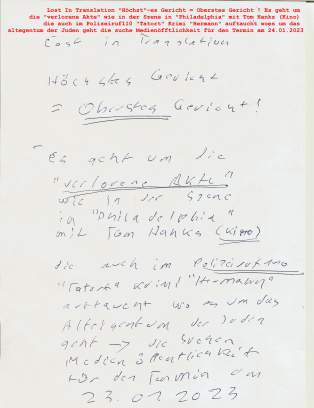 Lost In Translation "Höchst"-es Gericht = Oberstes Gericht ! Es geht um
die "verlorene Akte" wie in der Szene in "Philadelphia" mit Tom Hanks (Kino)
die auch im Polizeiruf110 "Tatort" Krimi "Hermann" auftaucht woes um das
alteigentum der Juden geht die suche Medienöffentlichkeit für den Termin am 24.01.2023
Lost in Translation
Höchstes Gericht
= Oberstes Gericht!
Es geht um die
"verlorene Akte"
wie in der Szene
in "Philadelphia"
mit Tom Hanks (Kino)
die auch im Polizeiruf110
"Tatort" Krimi "Hermann"
auftaucht wo es um das
Alteigentum der Juden
geht → die suchen
Medienöffentlichkeit
für den Termin am
23.01.2023